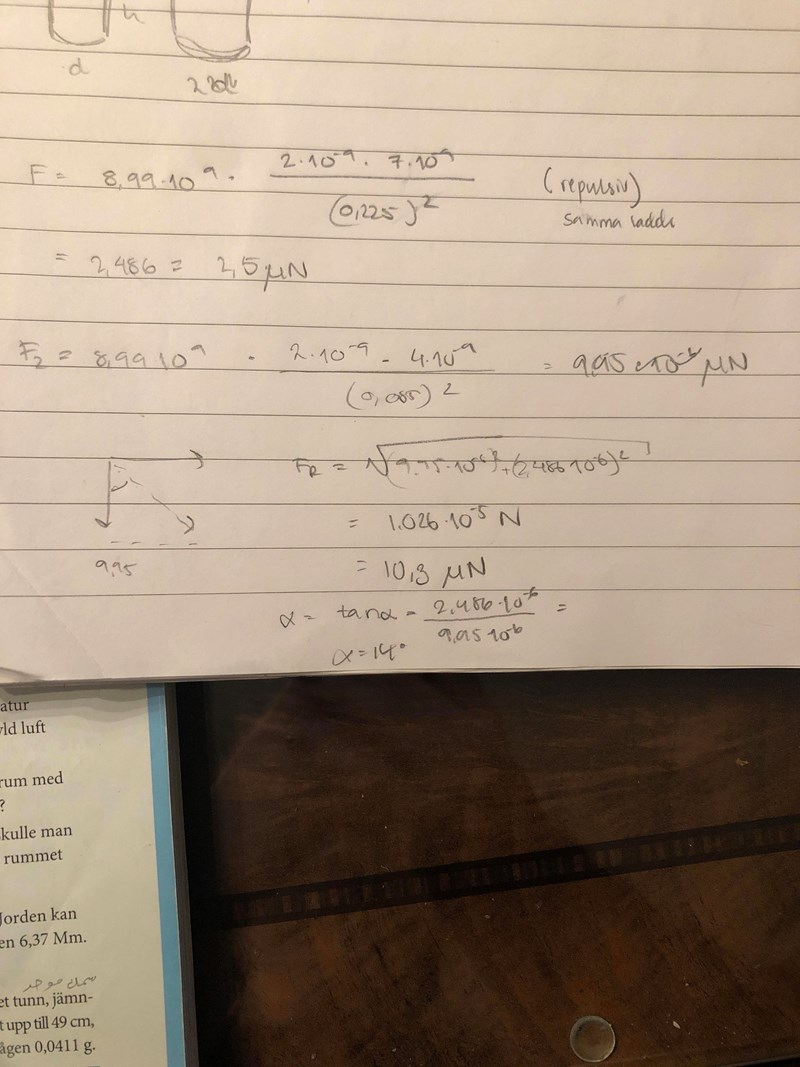 h
d
F = 8,99·10⁹ · 2·10⁻⁹ · 7·10⁻⁹ / (0,225)² (repulsiv)
samma
= 2,486 = 2,5 μN
F₂ = 8,99·10⁹ · 2·10⁻⁹ · 4·10⁻⁹ / (0,085)² = 9,95 μN
9,95
F_R = √(9,95·10⁻⁶)² + (2,486·10⁻⁶)²
= 1.026·10⁻⁵ N
= 10,3 μN
α = tanα = 2,486·10⁻⁶ / 9,95·10⁻⁶ =
α = 14°
atur
yld luft
rum med
?
kulle man
rummet
Jorden kan
en 6,37 Mm.
et tunn, jämn-
t upp till 49 cm,
ågen 0,0411 g.